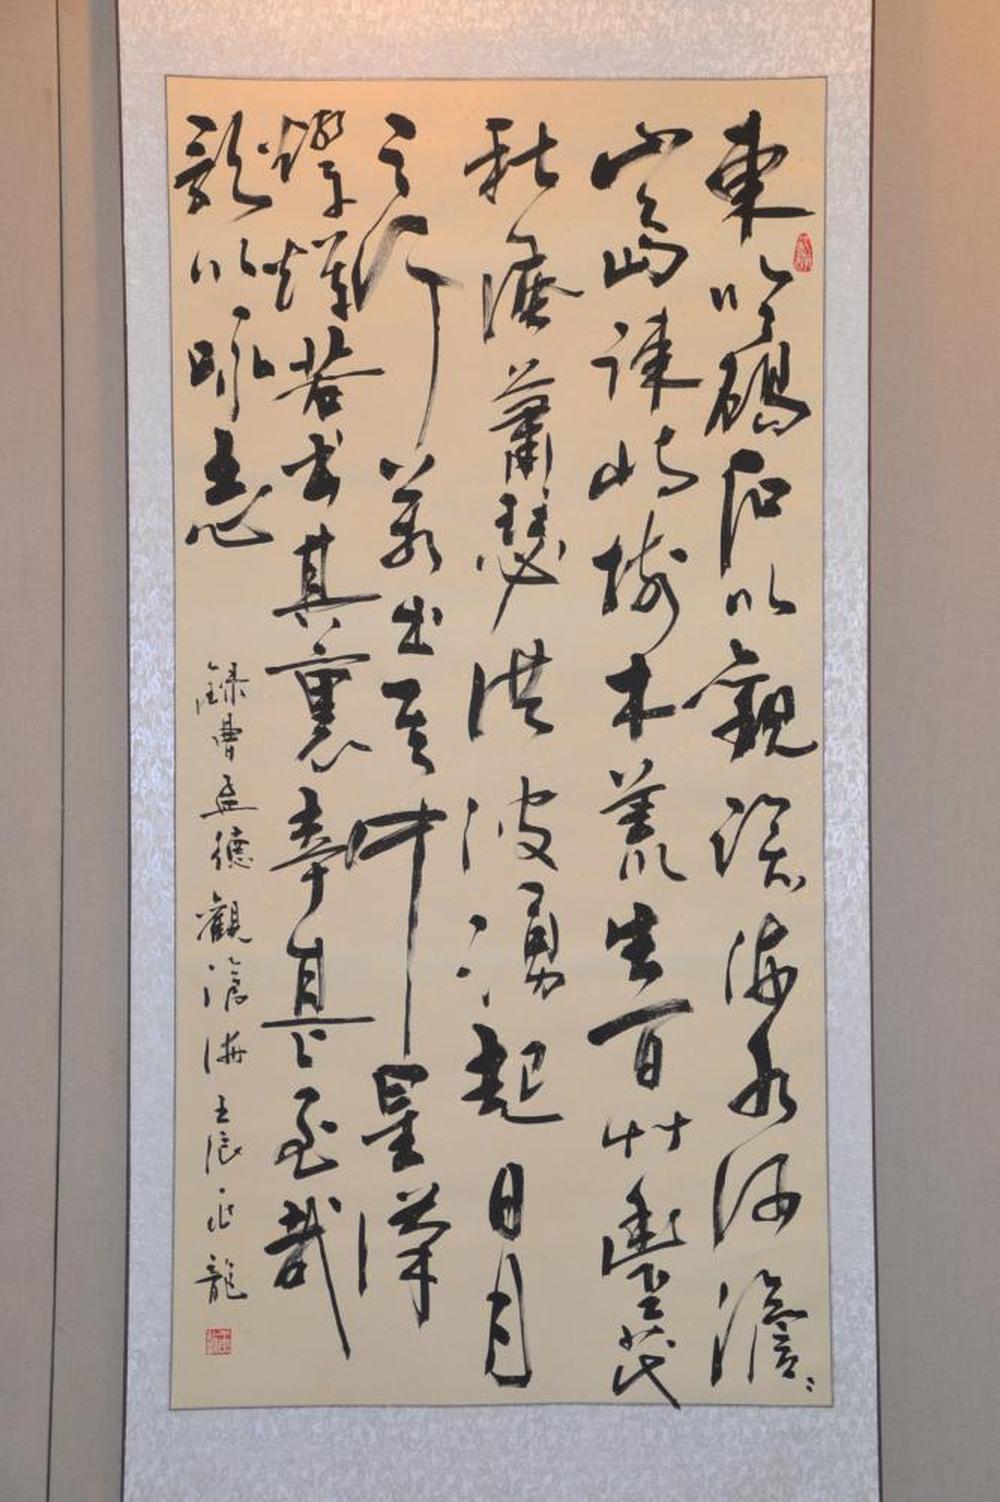 東臨碣石以觀滄海水何澹〻
山島竦峙樹木叢生百艸豐茂
秋風蕭瑟洪波湧起日月
之行若出其中星漢
燦爛若出其裏幸甚至哉
歌以咏志
錄曹孟德觀滄海壬辰正龍